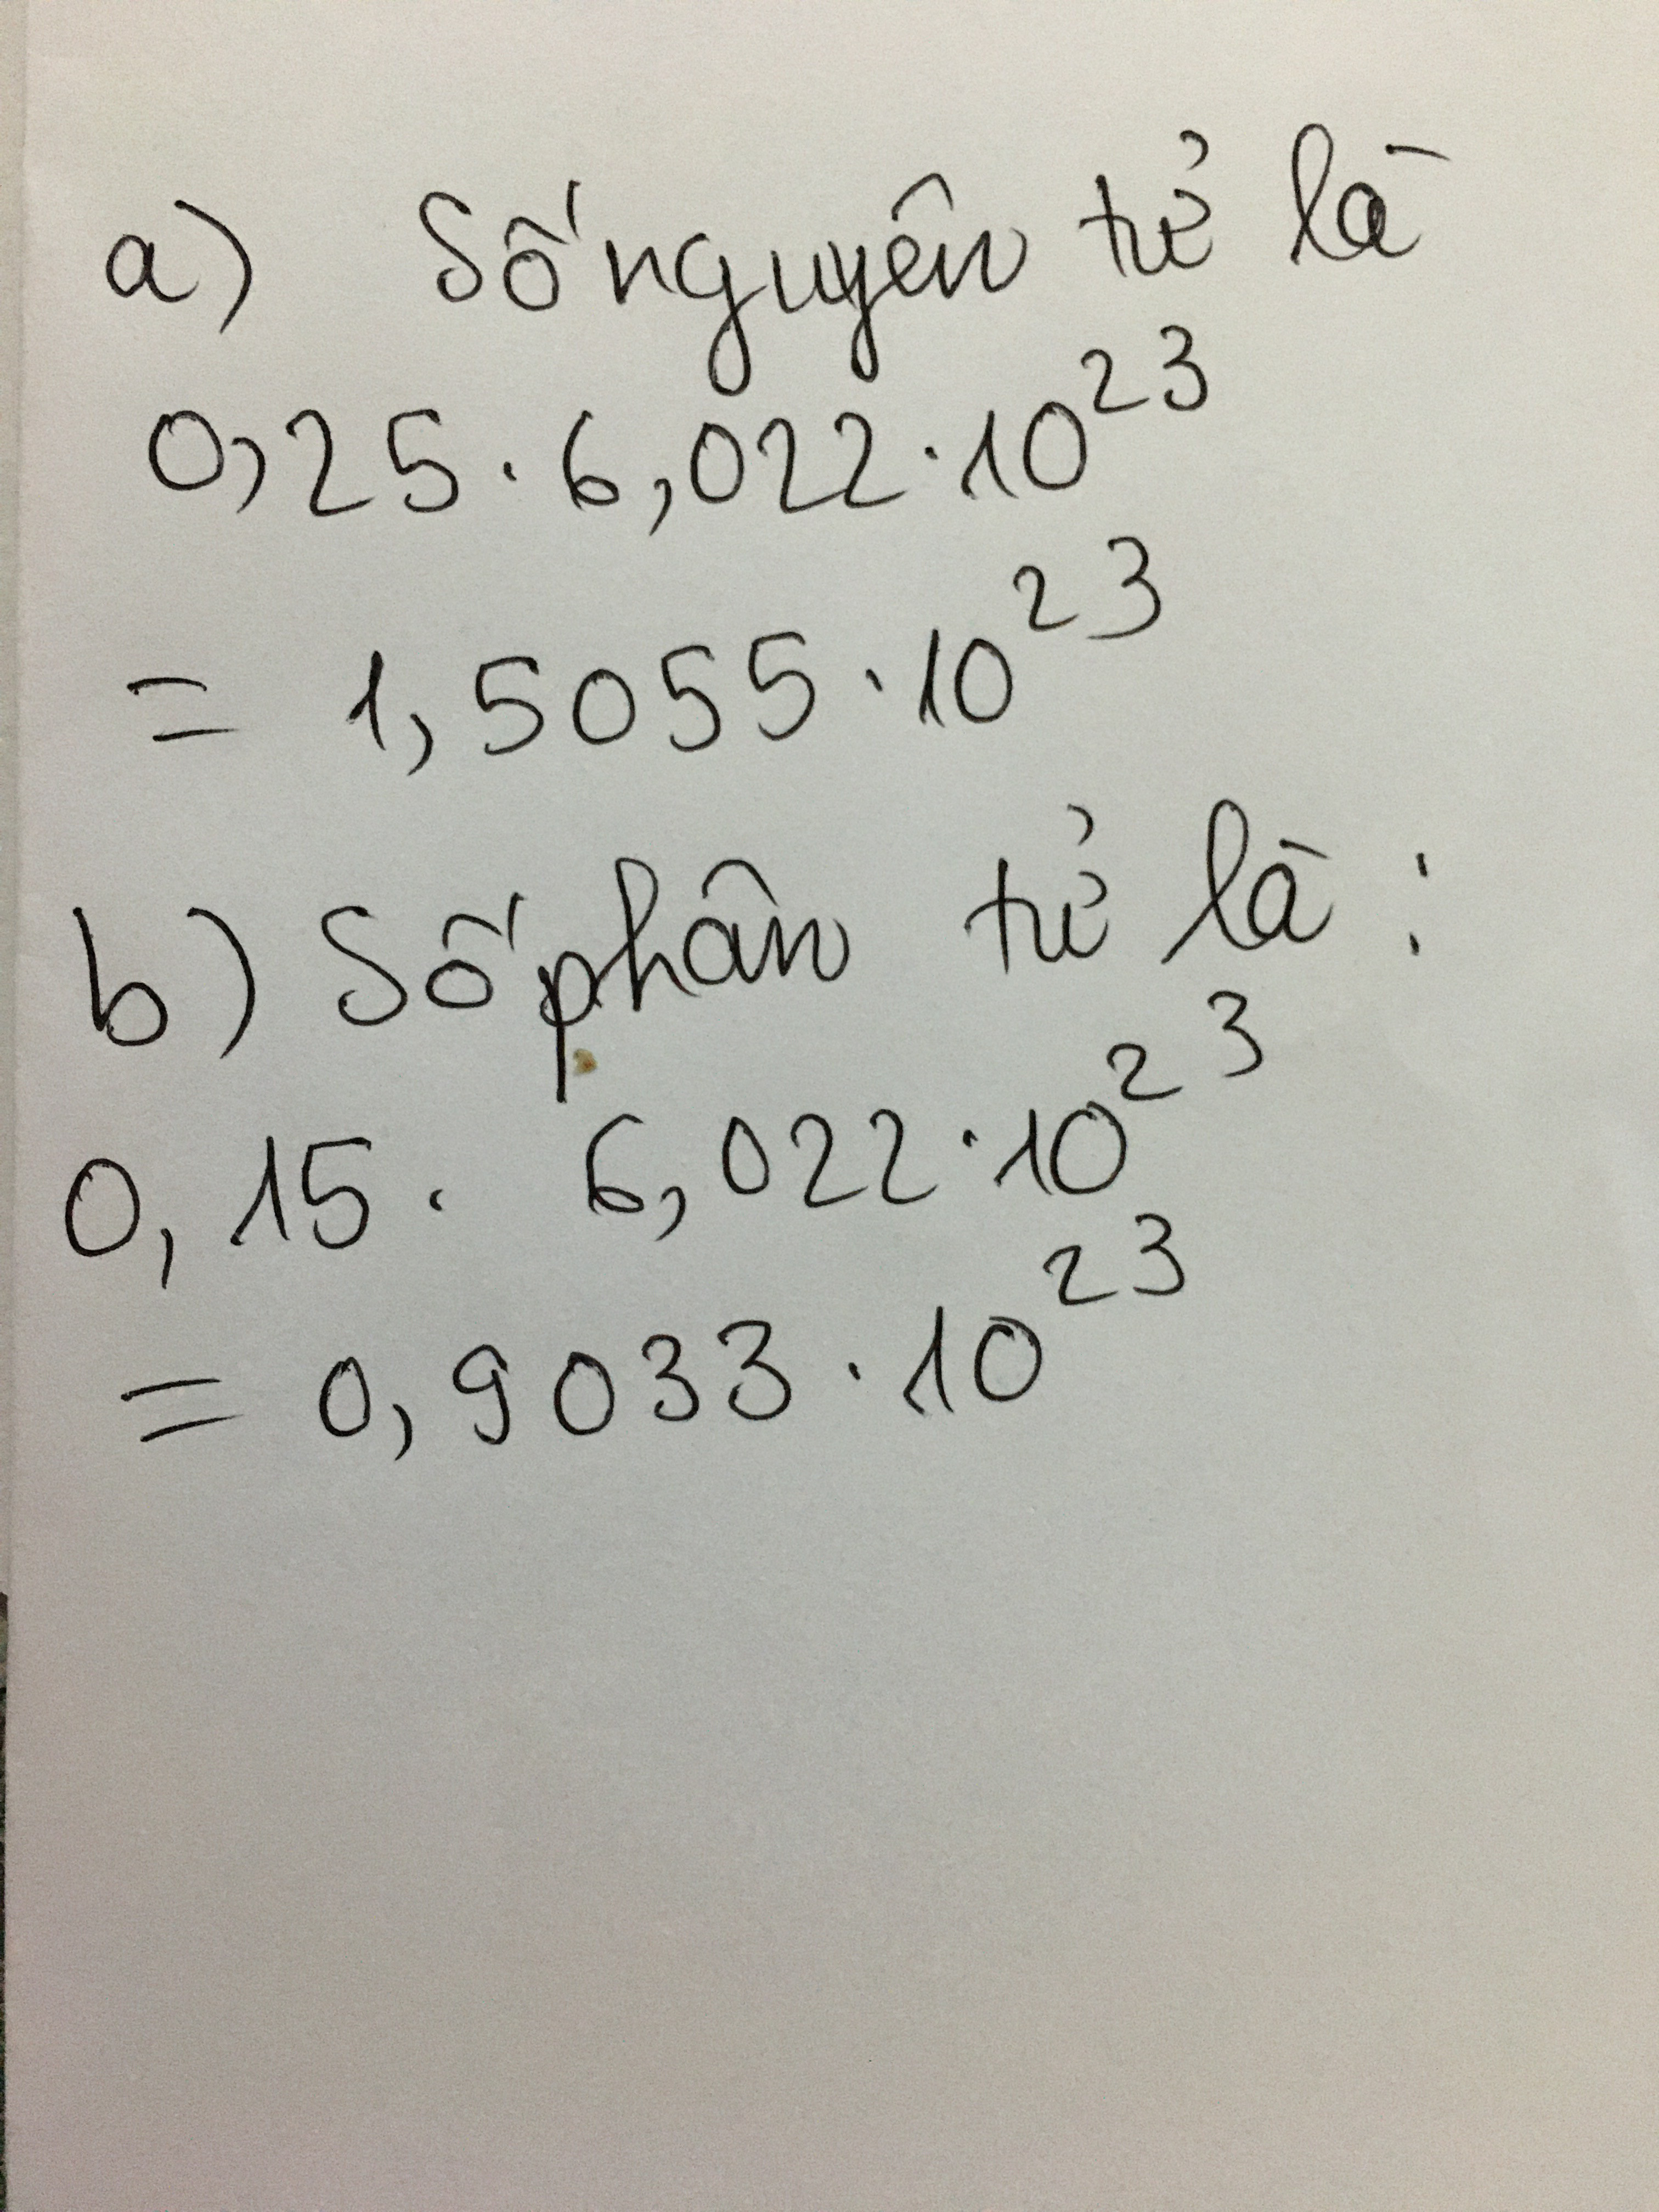 a) Số nguyên tử là
0,25 . 6,022 . 10²³
= 1,5055 . 10²³
b) Số phân tử là :
0,15 . 6,022 . 10²³
= 0,9033 . 10²³